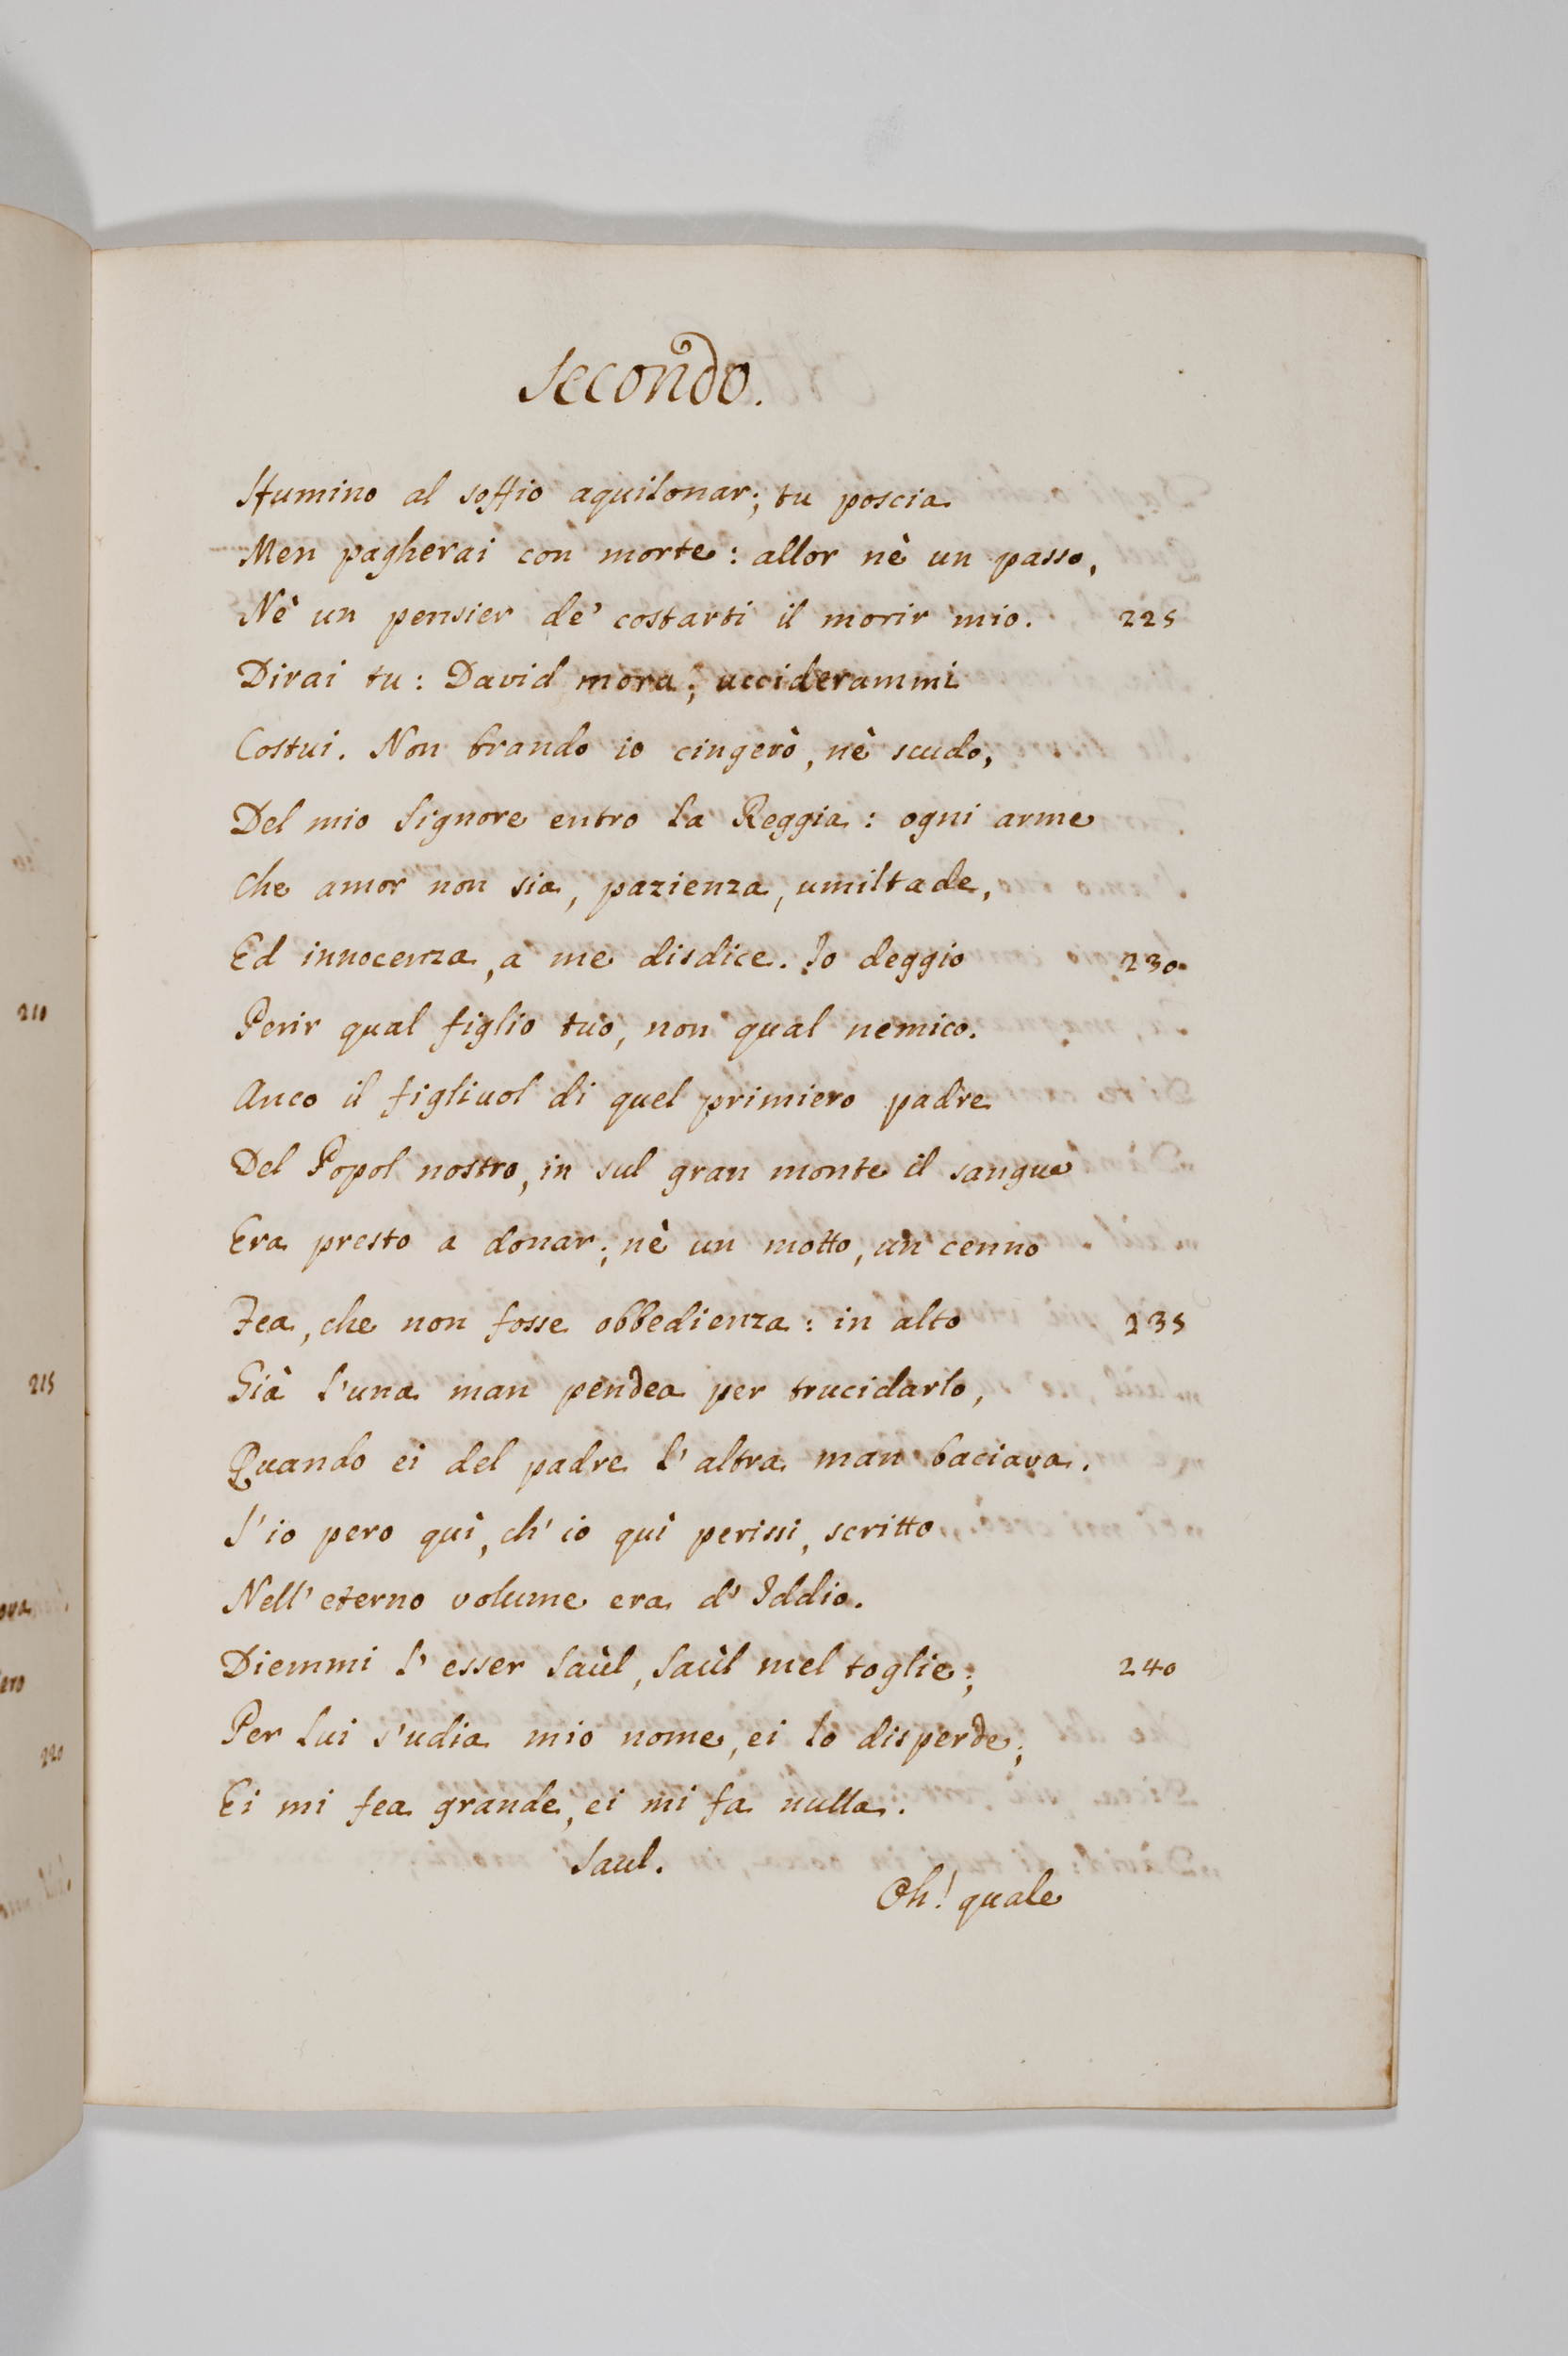 Secondo.
Sfumino al soffio aquilonar; tu poscia
Men pagherai con morte: allor nè un passo,
Nè un pensier de' costarti il morir mio. 225
Dirai tu: David mora;ucciderammi
Costui. Non brando io cingerò, nè scudo,
Del mio Signore entro la Reggia: ogni arme
Che amor non sia, pazienza, umiltade,
Ed innocenza, a me disdice. Io deggio 230
Perir qual figlio tuo, non qual nemico.
Anco il figliuol di quel primiero padre
Del Popol nostro, in sul gran monte il sangue
Era presto a donar; nè un motto, un cenno
Fea, che non fosse obbedienza: in alto 235
Già l'una man pendea per trucidarlo,
Quando ei del padre l'altra man baciava.
S'io pero quì, ch'io quì perissi, scritto
Nell'eterno volume era d'Iddio.
Diemmi l'esser Saùl, Saùl mel toglie; 240
Per lui s'udia mio nome, ei lo disperde;
Ei mi fea grande, ei mi fa nulla.
Saul.
Oh! quale
210
215
220